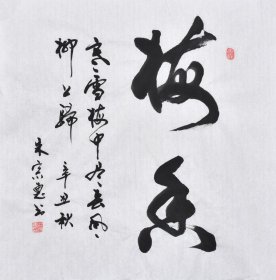 梅香
寒雪梅中尽春风
柳上归 辛丑秋
朱宗惠书